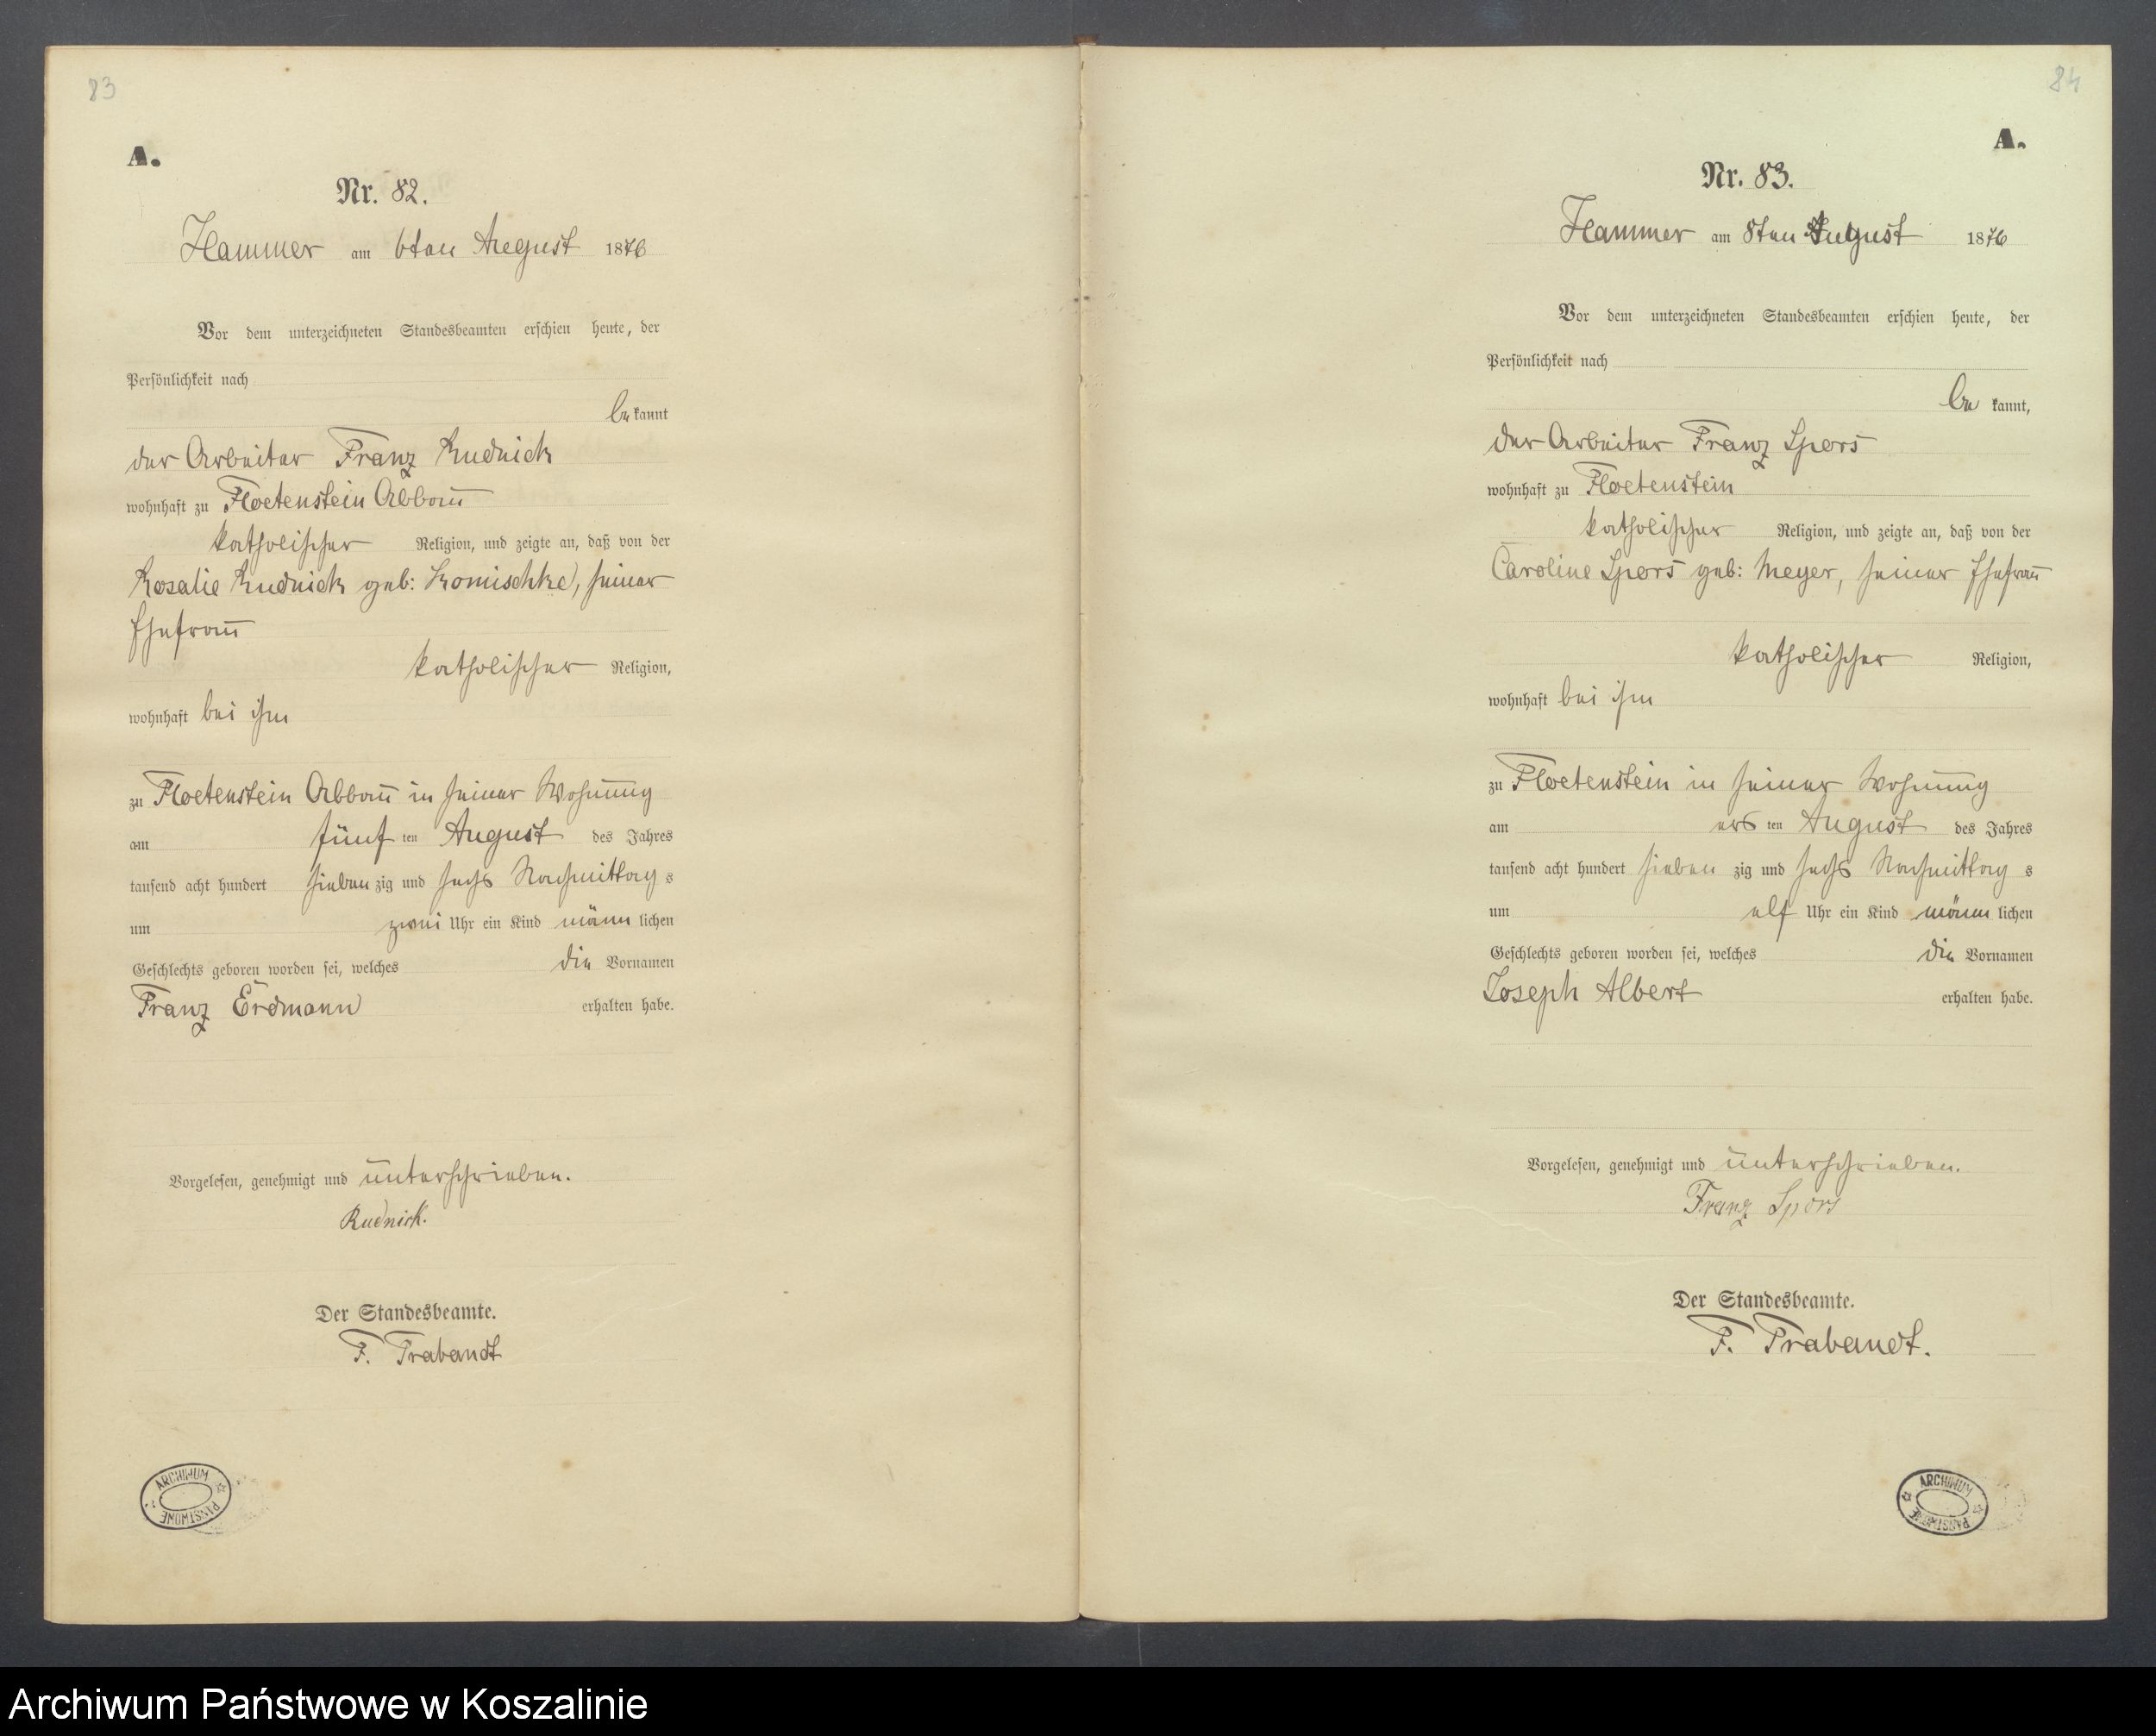 83
A.
Nr. 82.
Hammer am 6ten August 1876
Vor dem unterzeichneten Standesbeamten erschien heute, der
Persönlichkeit nach
be kannt
der Arbeiter Franz Rudnick
wohnhaft zu Floetenstein Abbau
katholischer Religion, und zeigte an, daß von der
Rosalie Rudnick geb: Komischke, seiner
Ehefrau
katholischer Religion,
wohnhaft bei ihm
zu Floetenstein Abbau in seiner Wohnung
am fünf ten August des Jahres
tausend acht hundert sieben zig und sechs Nachmittag s
um zwei Uhr ein Kind männ lichen
Geschlechts geboren worden sei, welches die Vornamen
Franz Erdmann erhalten habe.
Vorgelesen, genehmigt und unterschrieben.
Rudnick.
Der Standesbeamte.
F. Trabandt
ARCHIWUM PAŃSTWOWE
84
A.
Nr. 83.
Hammer am 8ten August 1876
Vor dem unterzeichneten Standesbeamten erschien heute, der
Persönlichkeit nach
be kannt,
der Arbeiter Franz Spors
wohnhaft zu Floetenstein
katholischer Religion, und zeigte an, daß von der
Caroline Spors geb: Meyer, seiner Ehefrau
katholischer Religion,
wohnhaft bei ihm
zu Floetenstein in seiner Wohnung
am ers ten August des Jahres
tausend acht hundert sieben zig und sechs Nachmittag s
um elf Uhr ein Kind männ lichen
Geschlechts geboren worden sei, welches die Vornamen
Joseph Albert erhalten habe.
Vorgelesen, genehmigt und unterschrieben.
Franz Spors
Der Standesbeamte.
F. Trabandt.
ARCHIWUM PAŃSTWOWE
Archiwum Państwowe w Koszalinie